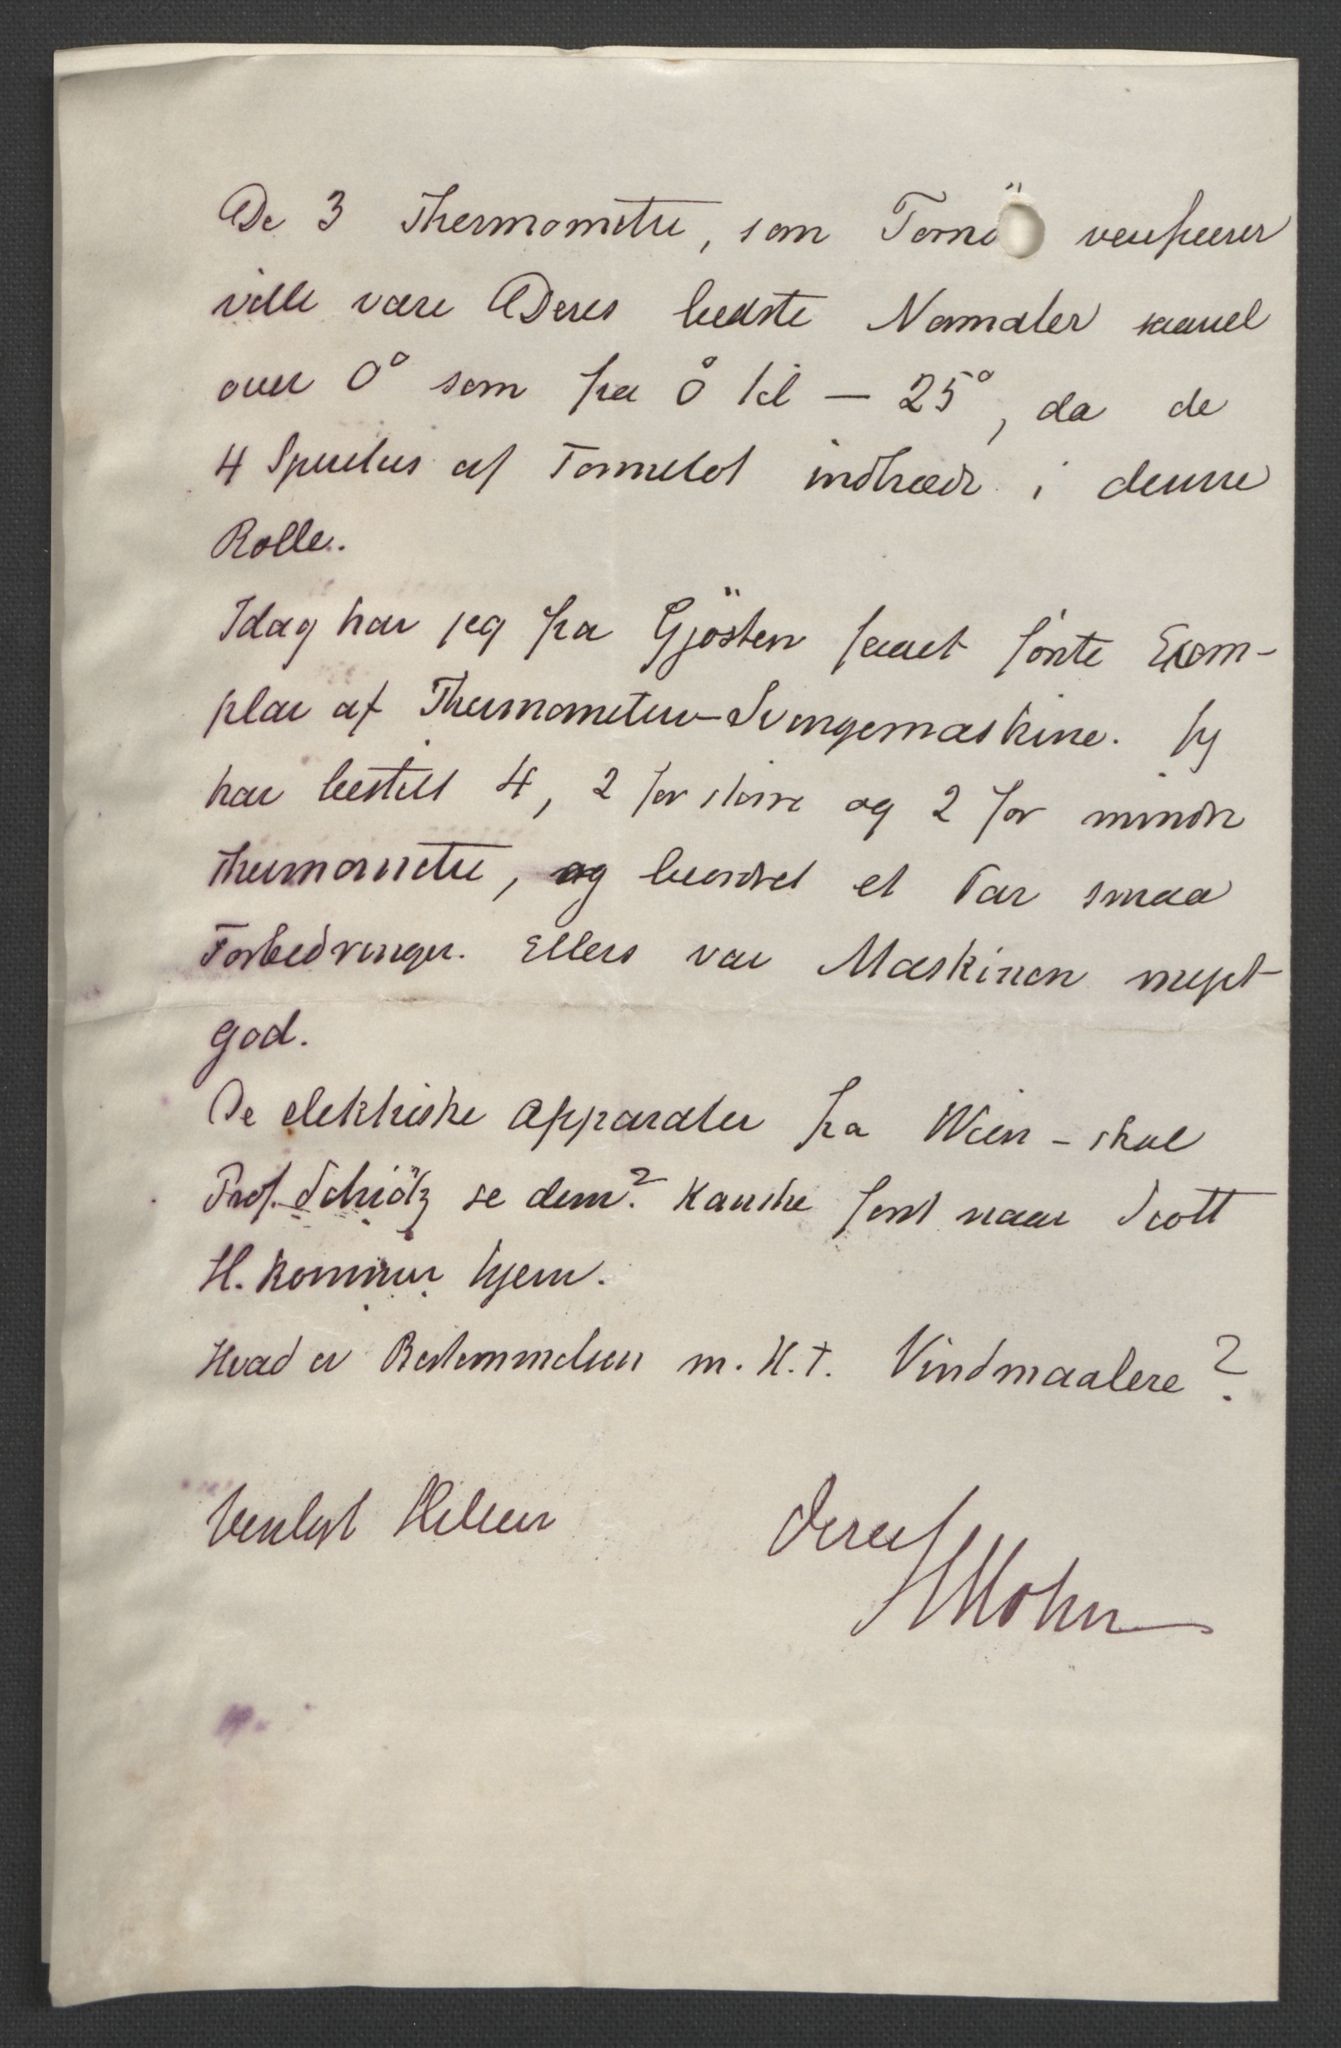 De 3 Thermometre, som Tornö verificerer
ville være Deres bedste Normaler saavel
over 0° som fra 0° til - 25°, da de
4 Spiritus af Tonnelot indtræde i denne
Rolle.
Idag har jeg fra Gjösten faaet förste Exem-
plar af Thermometer-Svingemaskine. Jeg
har bestilt 4, 2 for större og 2 for mindre
Thermometre, og beordret et Par smaa
Forbedringer. Ellers var Maskinen meget
god.
De elektriske Apparater fra Wien - skal
Prof. Schiötz se dem? Kanske först naar Scott
H. kommer hjem.
Hvad er Bestemmelsen m. H. t. Vindmaalere?
Venligst Hilsen Deres
H Mohn